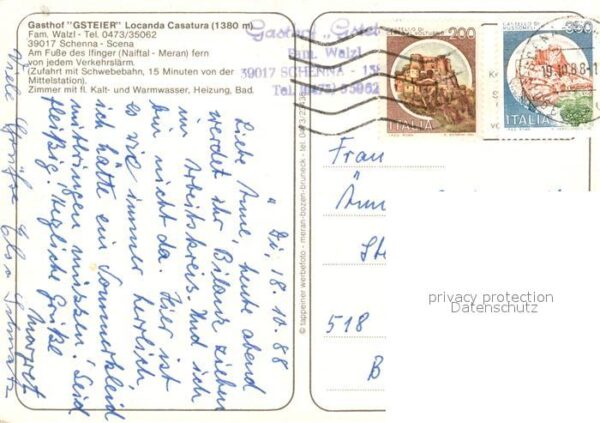 Gasthof "GSTEIER" Locanda Casatura (1380 m)
Fam. Walzl - Tel. 0473/35062
39017 Schenna - Scena
Am Fuße des Ifinger (Naiftal - Meran) fern
von jedem Verkehrslärm.
(Zufahrt mit Schwebebahn, 15 Minuten von der
Mittelstation).
Zimmer mit fl. Kalt- und Warmwasser, Heizung, Bad.
Gasthof „Gstei
Fam. Walzl
39017 SCHENNA - 
Tel. (0473) 35062
CASTELLO DI
200
ITALIA
CASTELLO DI
ITALIA
19.10.88-1
Di, 18.10.88
Liebe Anne, heute abend
werdet ihr Bilanz ziehen
im Arbeitskreis. Und ich
bin nicht da. Hier ist
es wie immer herrlich,
ich hätte ein Sommerkleid
mitbringen müssen. Seid
fleißig! Herzliche Grüße
Margret
Viele Grüße Elsa
© tappeiner werbefoto - meran-bozen-bruneck - tel. 0473/
Frau
Änn
Ste
518
B
privacy protection
Datenschutz